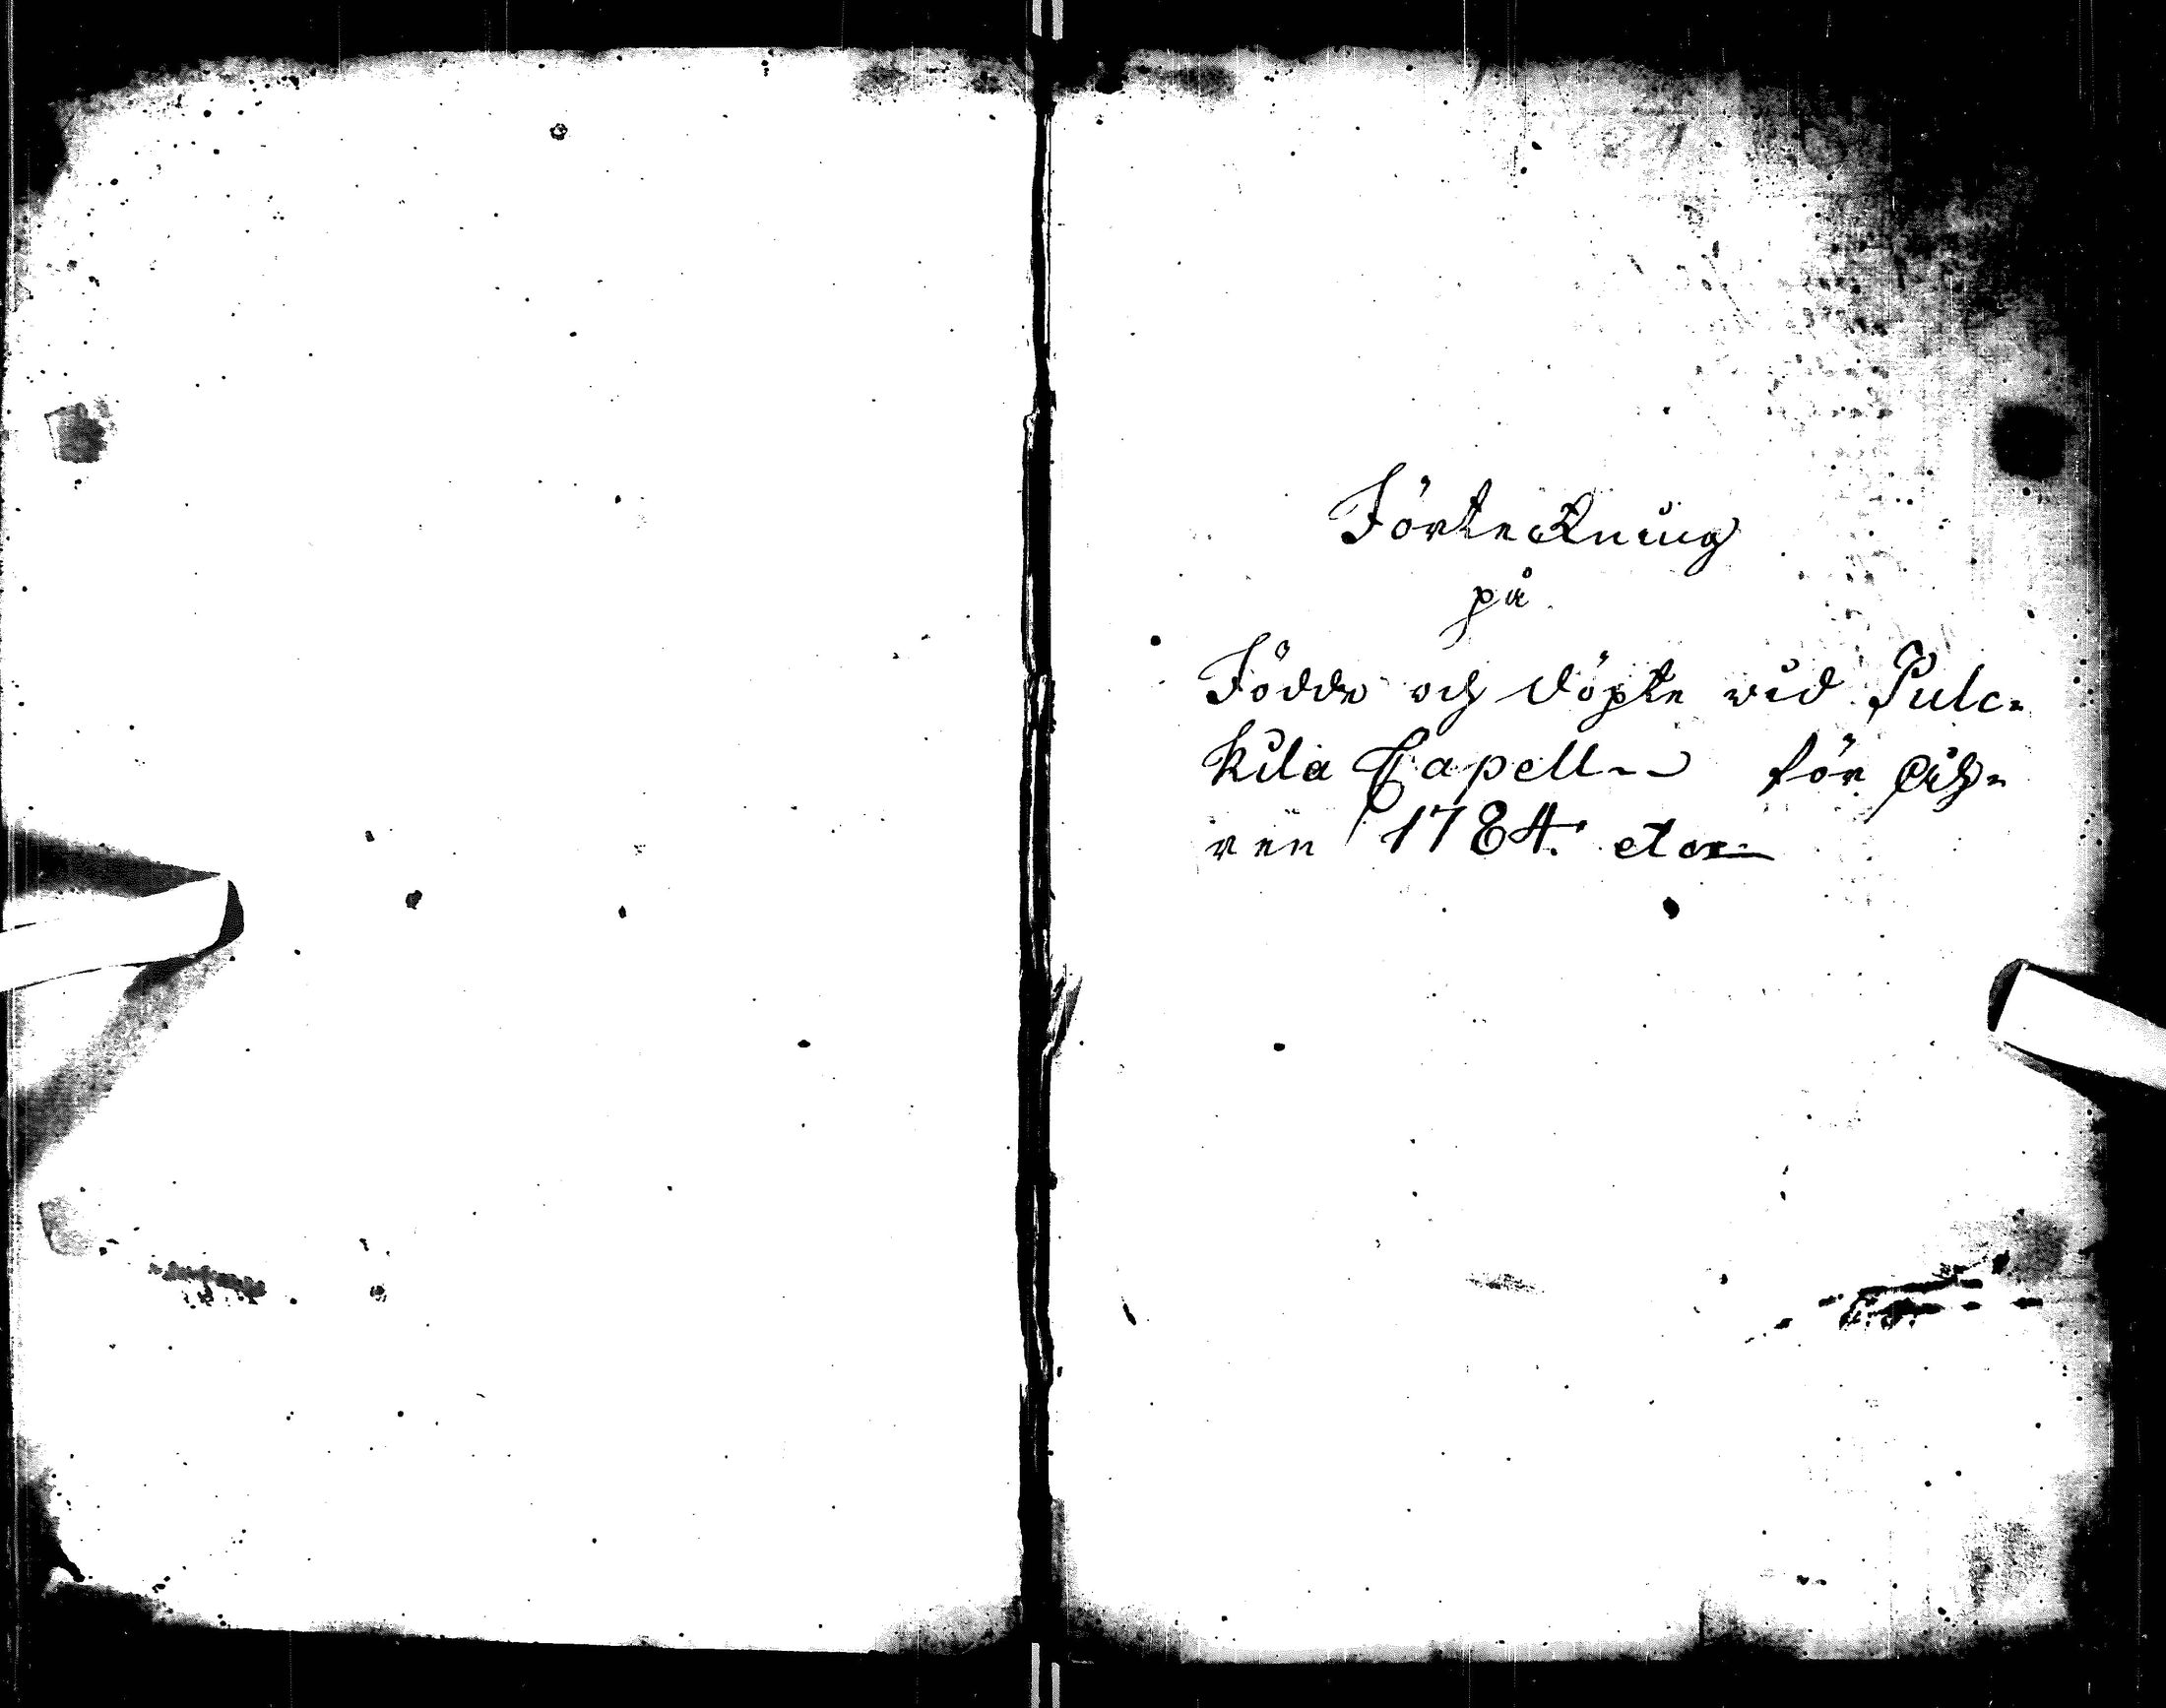 Förteckning
på
Födde och döpte wid Pulc-
kila Capell för åh-
ren 1784. etc.